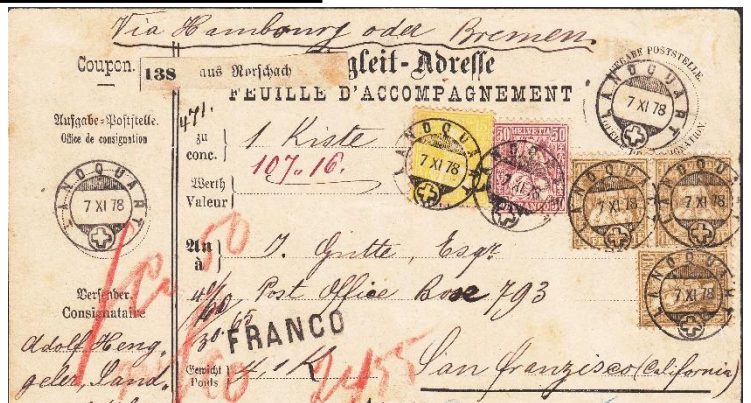 Via Hambourg oder Bremen.
Coupon.
138 aus Rorschach
gleit-Adresse
FEUILLE D'ACCOMPAGNEMENT
AUSGABE POSTSTELLE.
LANDQUART
7 XI 78
Aufgabe-Poststelle.
Office de consignation
LANDQUART
7 XI 78
471.
zu
conc.
1 Kiste
107.16.
Werth
Valeur
50 HELVETIA 50
FRANCO
LANDQUART
7 XI 78
LANDQUART
7 XI 78
LANDQUART
7 XI 78
LANDQUART
7 XI 78
LANDQUART
7 XI 78
An
à
J. Gutte, Esqr
50
Post Office Box 793
Versender.
Consignataire
FRANCO
Adolf Heng-
geler, Land-
Gewicht
Poids
4. 1 K
2455
San franzisco (California)